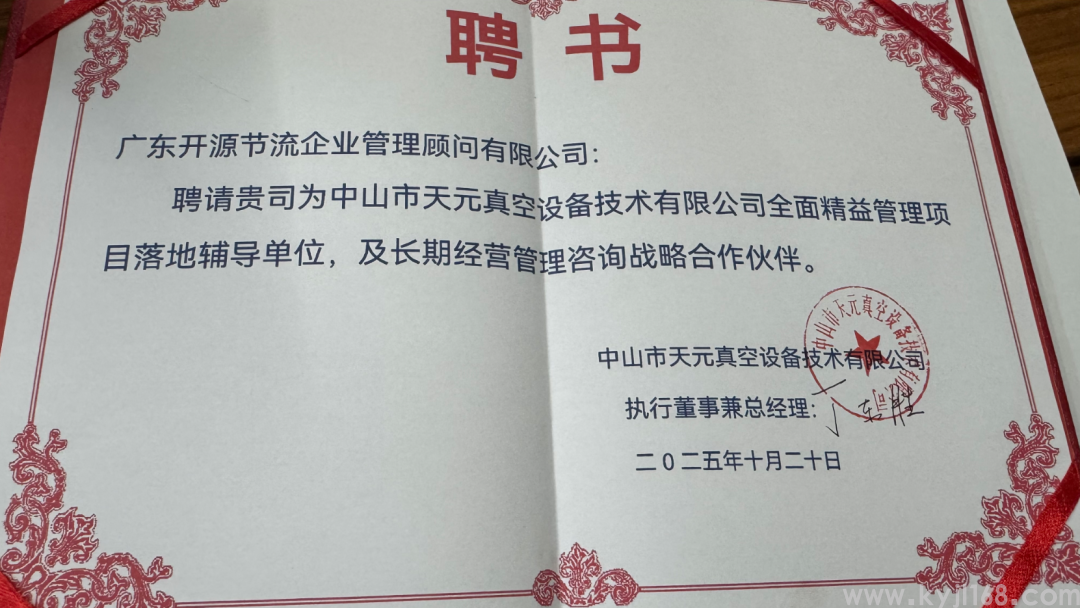 聘书
广东开源节流企业管理顾问有限公司：
聘请贵司为中山市天元真空设备技术有限公司全面精益管理项
目落地辅导单位，及长期经营管理咨询战略合作伙伴。
中山市天元真空设备技术有限公司
中山市天元真空设备技术有限公司
执行董事兼总经理：
二0二五年十月二十日
www.kyjl168.com